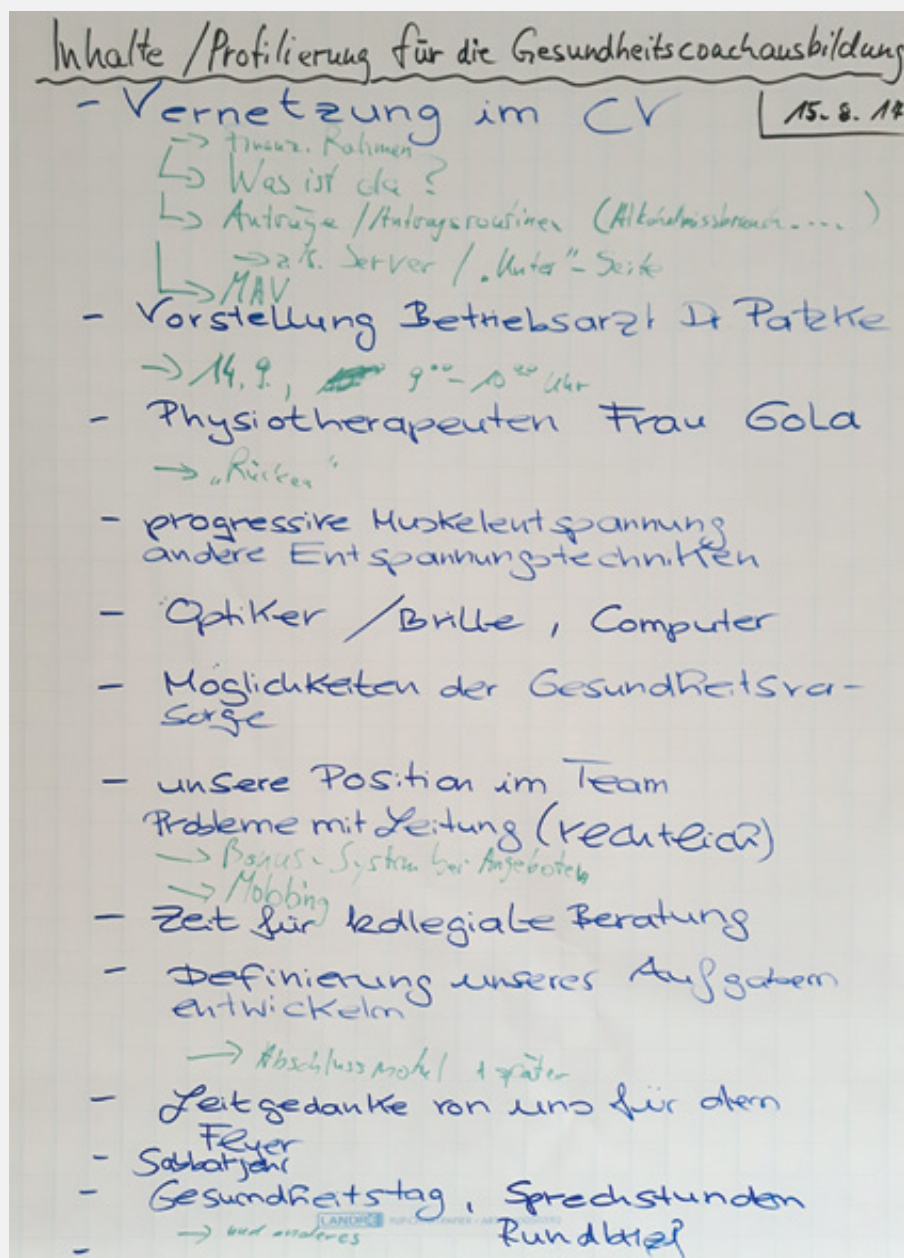 Inhalte / Profilierung für die Gesundheitscoachausbildung
15.8.17
- Vernetzung im CV
→ finanz. Rahmen
↳ Was ist da?
↳ Anträge / Antragsroutinen (Alkoholmissbrauch.....)
→ z.B. Server / „Unter"-Seite
↳ MAV
- Vorstellung Betriebsarzt Dr Patzke
→ 14.9., 9⁰⁰ - 10⁰⁰ Uhr
- Physiotherapeuten Frau Gola
→ „Rücken"
- progressive Muskelentspannung
andere Entspannungstechniken
- Optiker / Brille, Computer
- Möglichkeiten der Gesundheitsvor-
sorge
- unsere Position im Team
Probleme mit Leitung (rechtlich)
→ Bonus-System bei Angeboten
→ Mobbing
- Zeit für kollegiale Beratung
- Definierung unseres Aufgaben
entwickeln
→ Abschlussmodul + später
- Leitgedanke von uns für den
Flyer
- Sabbatjahr
- Gesundheitstag, Sprechstunden
LANDRÉ
→ und anderes Rundbrief
-